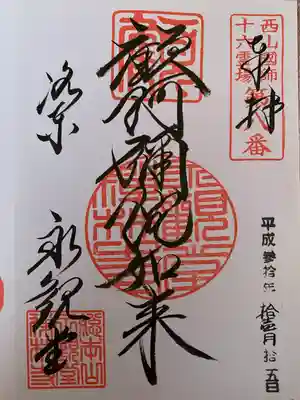 西山國師
十六霊場
第八番
奉拝
平成參拾年 拾壹月 拾五日
顧阿彌陀如来
洛東 永観堂